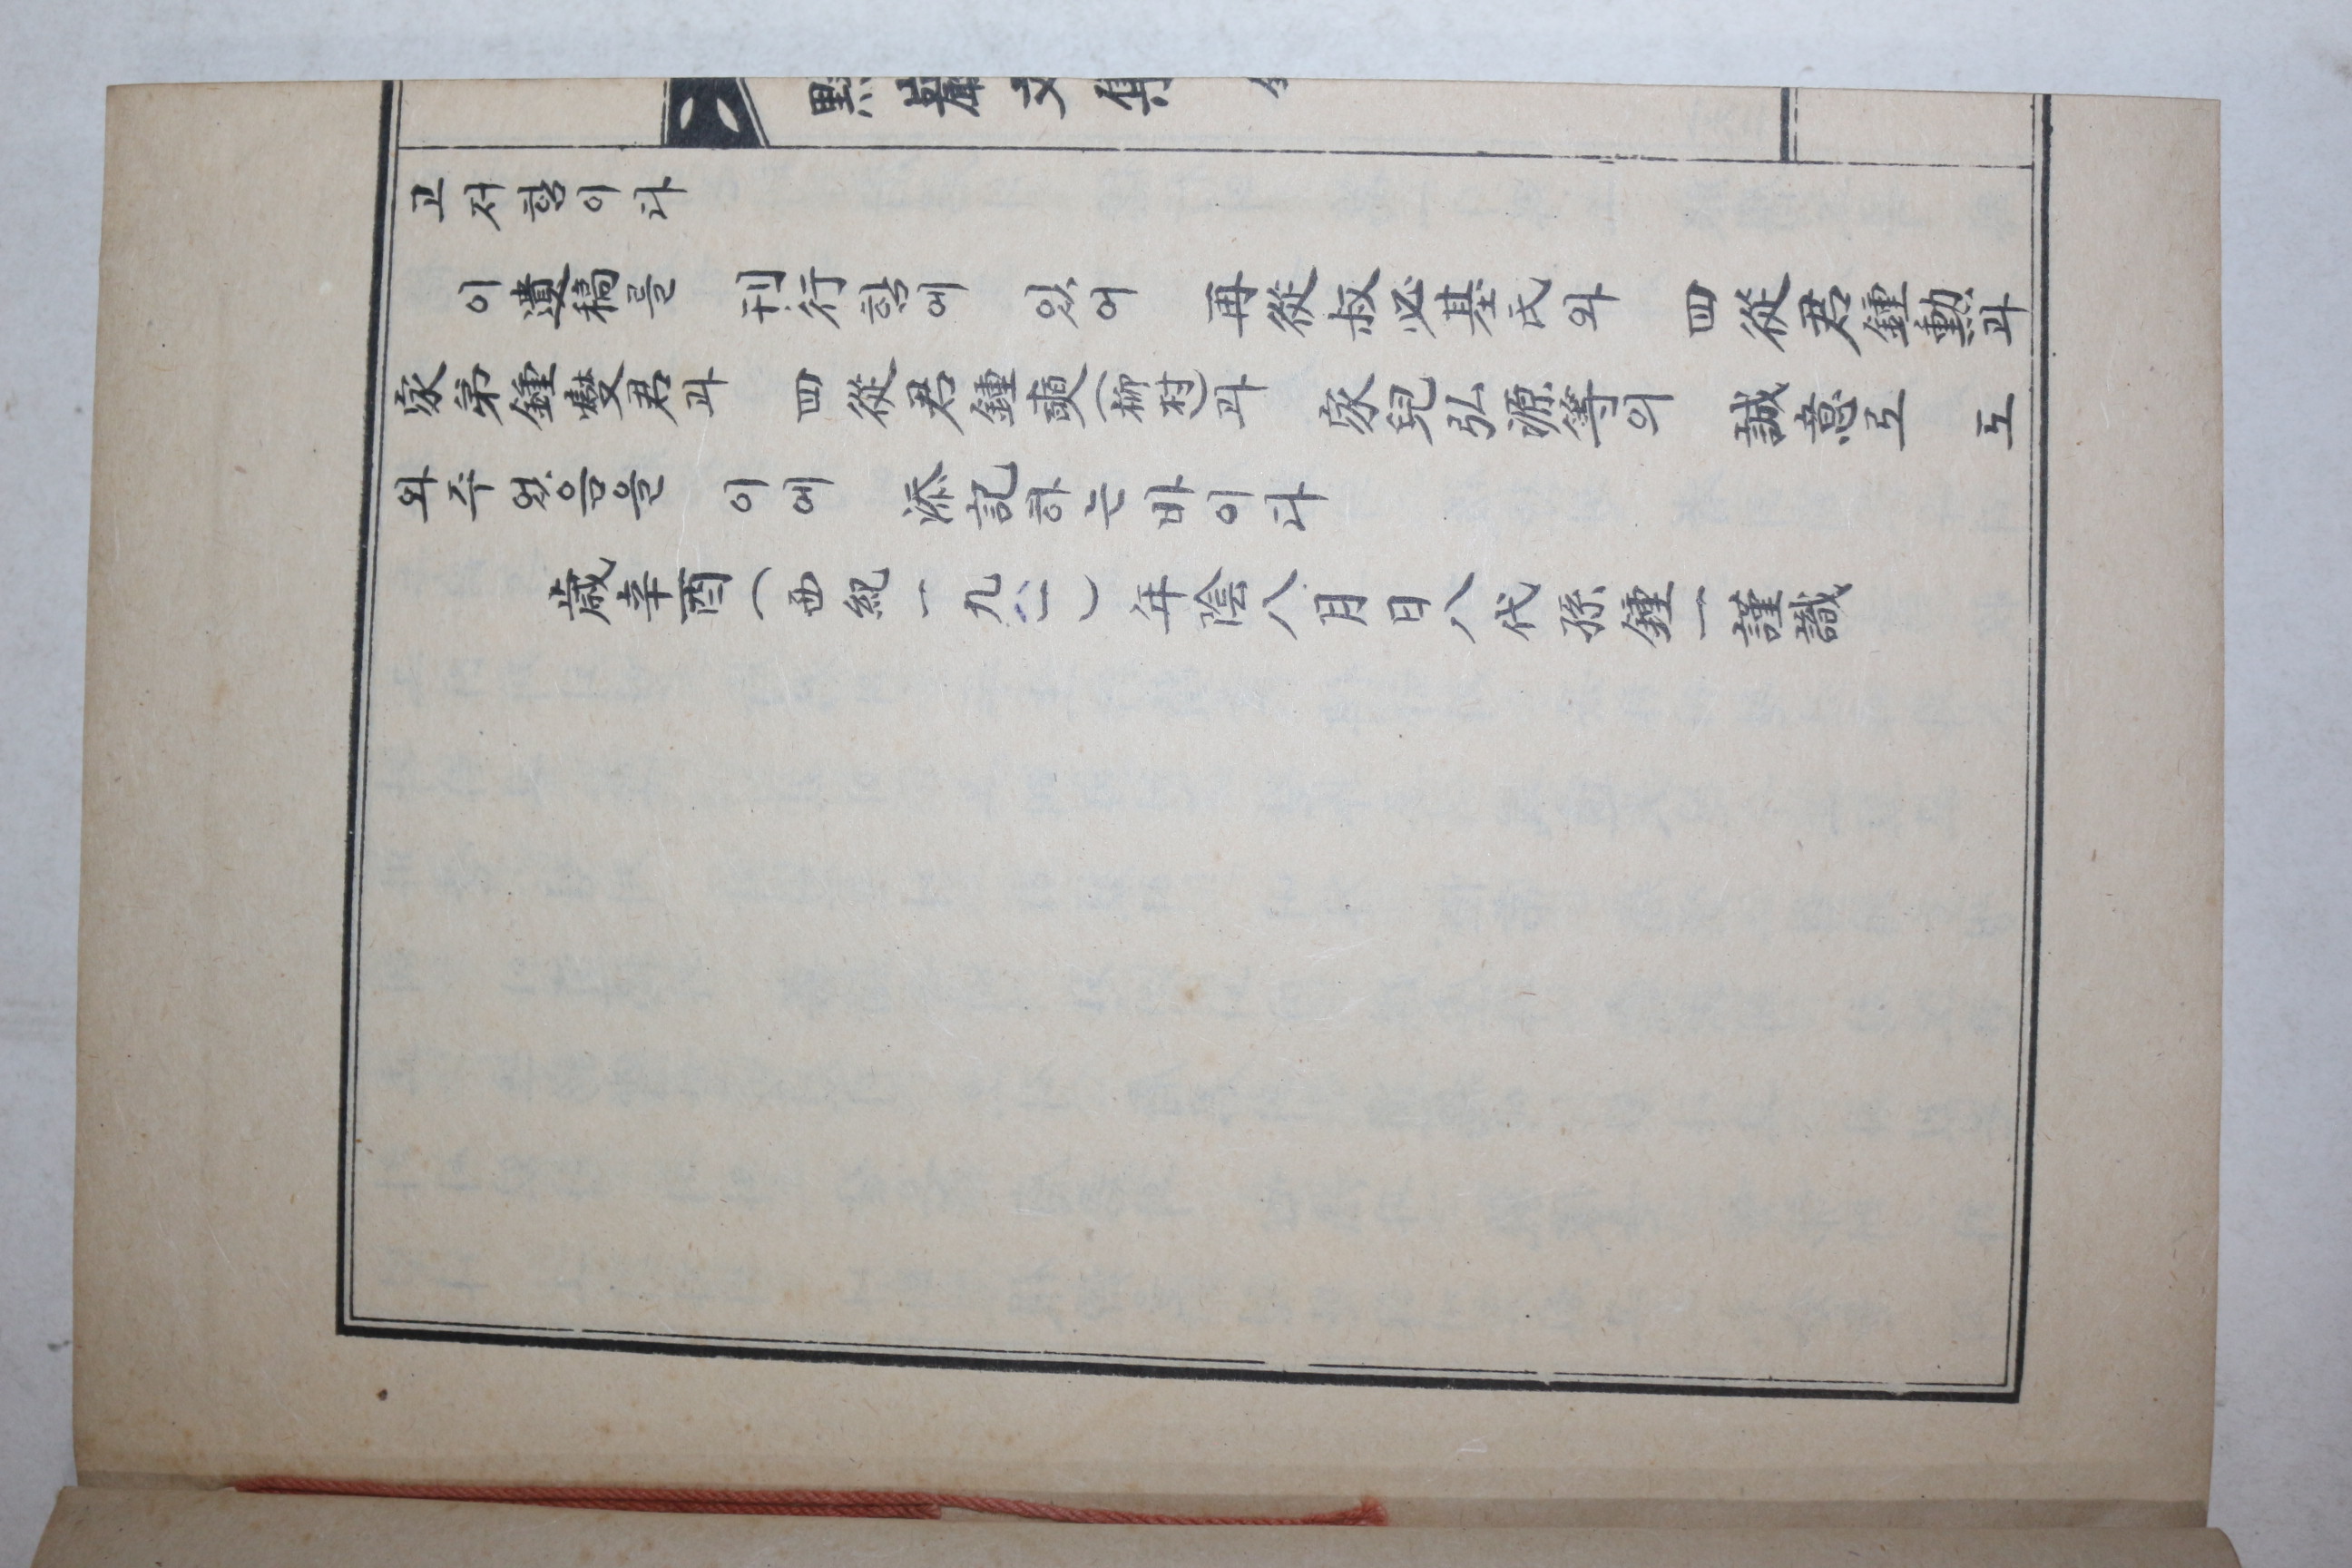 文集
고저함이다
이遺稿를 刊行함에 있어 再從叔必基氏와 四從君鍾勳과
家弟鍾燮君과 四從君鍾(柳村)과 家兒弘源等의 誠意로 도
와주었음을 이에 添記하는바이다
歲辛酉(西紀一九八一)年陰八月日八代孫鍾一謹識